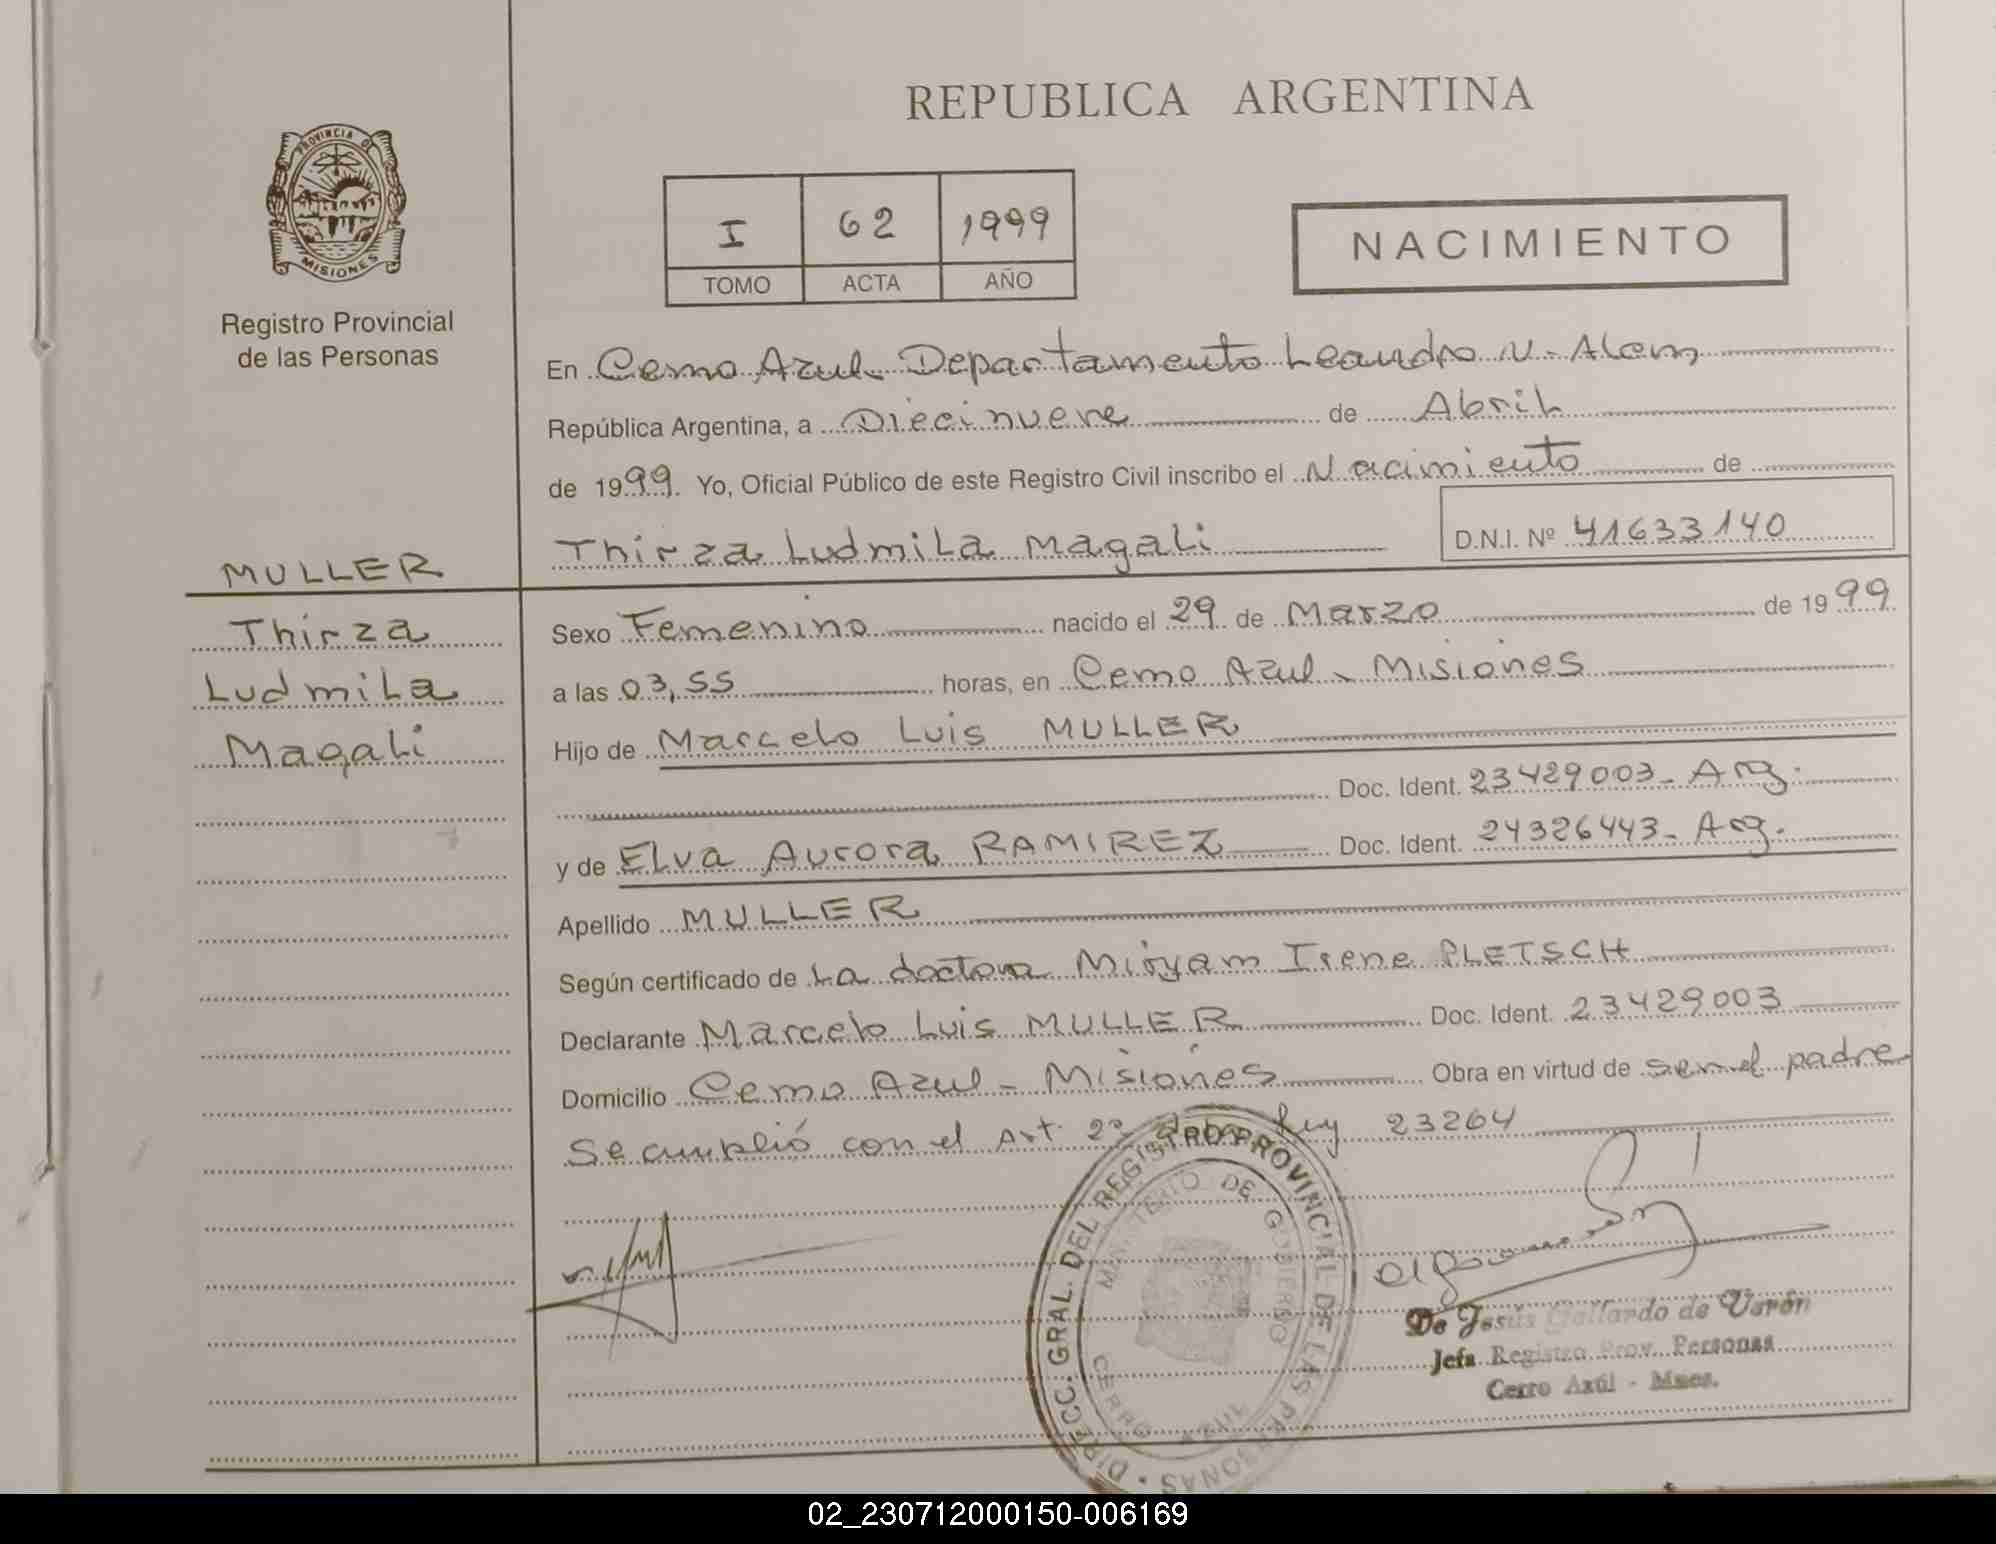 REPUBLICA ARGENTINA
PROVINCIA DE MISIONES
Registro Provincial
de las Personas
I 62 1999
TOMO ACTA AÑO
NACIMIENTO
En Cerro Azul Departamento Leandro N. Alem
República Argentina, a Diecinueve de Abril
de 1999. Yo, Oficial Público de este Registro Civil inscribo el Nacimiento de
Thirza Ludmila Magali D.N.I. Nº 41633140
MULLER
Thirza
Ludmila
Magali
Sexo Femenino nacido el 29 de Marzo de 1999
a las 03,55 horas, en Cerro Azul - Misiones
Hijo de Marcelo Luis MULLER
Doc. Ident. 23429003- Arg.
y de Elva Aurora RAMIREZ Doc. Ident. 24326443- Arg.
Apellido MULLER
Según certificado de La doctora Miryam Irene PLETSCH
Declarante Marcelo Luis MULLER Doc. Ident. 23429003
Domicilio Cerro Azul - Misiones Obra en virtud de ser el padre
Se cumplió con el Art. 2º de la Ley 23264
DIRECC. GRAL. DEL REGISTRO PROVINCIAL DE LAS PERSONAS
MINISTERIO DE GOBIERNO
CERRO AZUL
De Jesús Gallardo de Varón
Jefa Registro Prov. Personas
Cerro Azúl - Mnes.
02_230712000150-006169